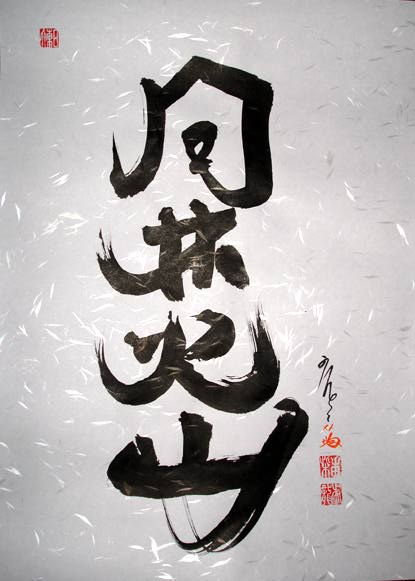 風林火山